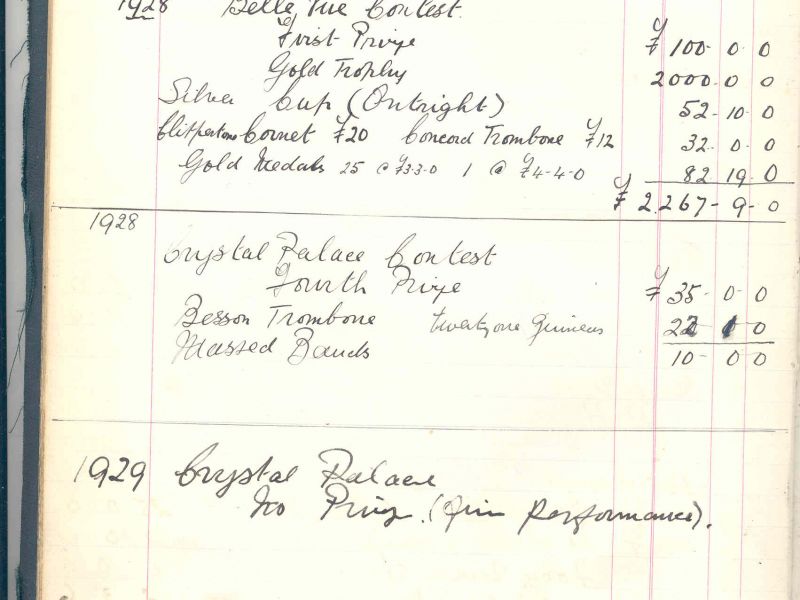 1928 Belle Vue Contest
First Prize £ 100- 0 0
Gold Trophy 2000 0 0
Silver Cup (Outright) 52- 10 0
Clippertone Cornet £20 Concord Trombone £12 32- 0 0
Gold Medals 25 @ £3-3-0 1 @ £4-4-0 82 19 0
£ 2.267- 9- 0
1928
Crystal Palace Contest
Fourth Prize £ 35- 0 0
Besson Trombone twenty one Guineas 22 1 0
Massed Bands 10- 0 0
1929 Crystal Palace
No Prize. (Fine Performance).